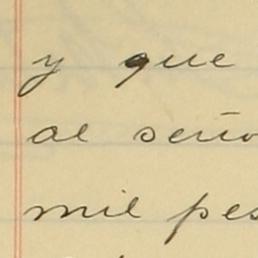 y que
al seño
mil pes